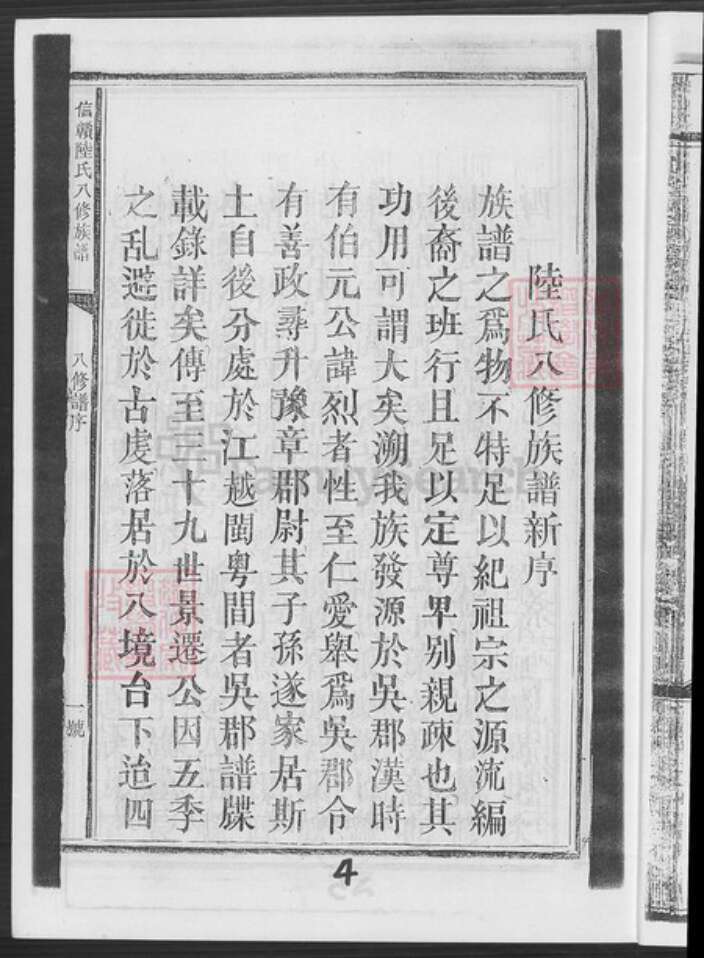 陸氏八修族譜新序
族譜之爲物不特足以紀祖宗之源流編
後裔之班行且足以定尊卑別親疎也其
功用可謂大矣溯我族發源於吳郡漢時
有伯元公諱烈者性至仁愛舉爲吳郡令
有善政尋升豫章郡尉其子孫遂家居斯
土自後分處於江越閩粤間者吳郡譜牒
載錄詳矣傳至三十九世景遷公因五季
之乱遊徙於古虔落居於八境台下迨四
信贛陸氏八修族譜
八修譜序
一號
4
FamilySearch